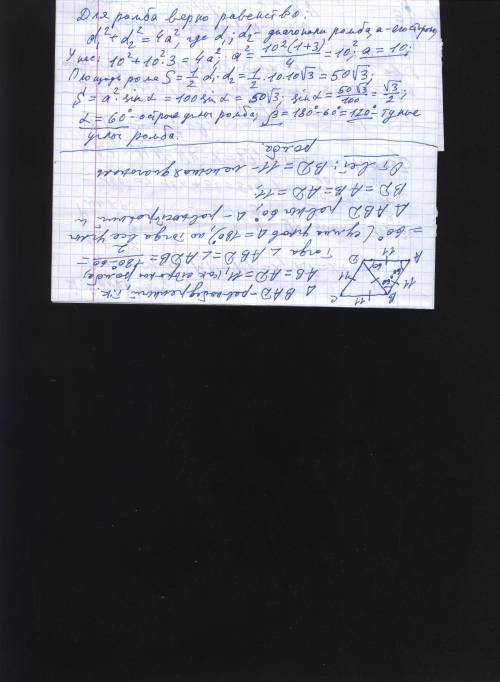 Для ромба верно равенство:
d₁² + d₂² = 4a², где d₁ и d₂ - диагонали ромба, a - его сторона
У нас: 10² + 10²·3 = 4a²; a² = 10²(1+3)/4 = 10²; a = 10;
Площадь ромба S = 1/2 d₁·d₂ = 1/2·10·10√3 = 50√3;
S = a² sin α = 100 sin α = 50√3; sin α = 50√3/100 = √3/2;
α = 60° - острые углы ромба, β = 180° - 60° = 120° - тупые
углы ромба.
A 11 B 11 C D 11 11 60°
Δ BAD - равнобедренный, т.к.
AB = AD = 11, как стороны ромба,
Тогда ∠ABD = ∠ADB = (180° - 60°)/2 =
= 60° (сумма углов Δ = 180°), но тогда все углы
Δ ABD равны 60°, Δ - равносторонний и
BD = AB = AD = 11;
Ответ: BD = 11 - меньшая диагональ
ромба.